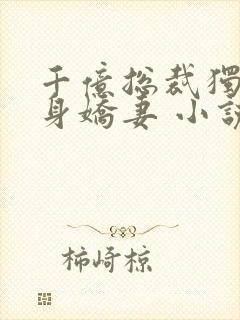 千億總裁獨
身嬌妻 小說
柿崎椋